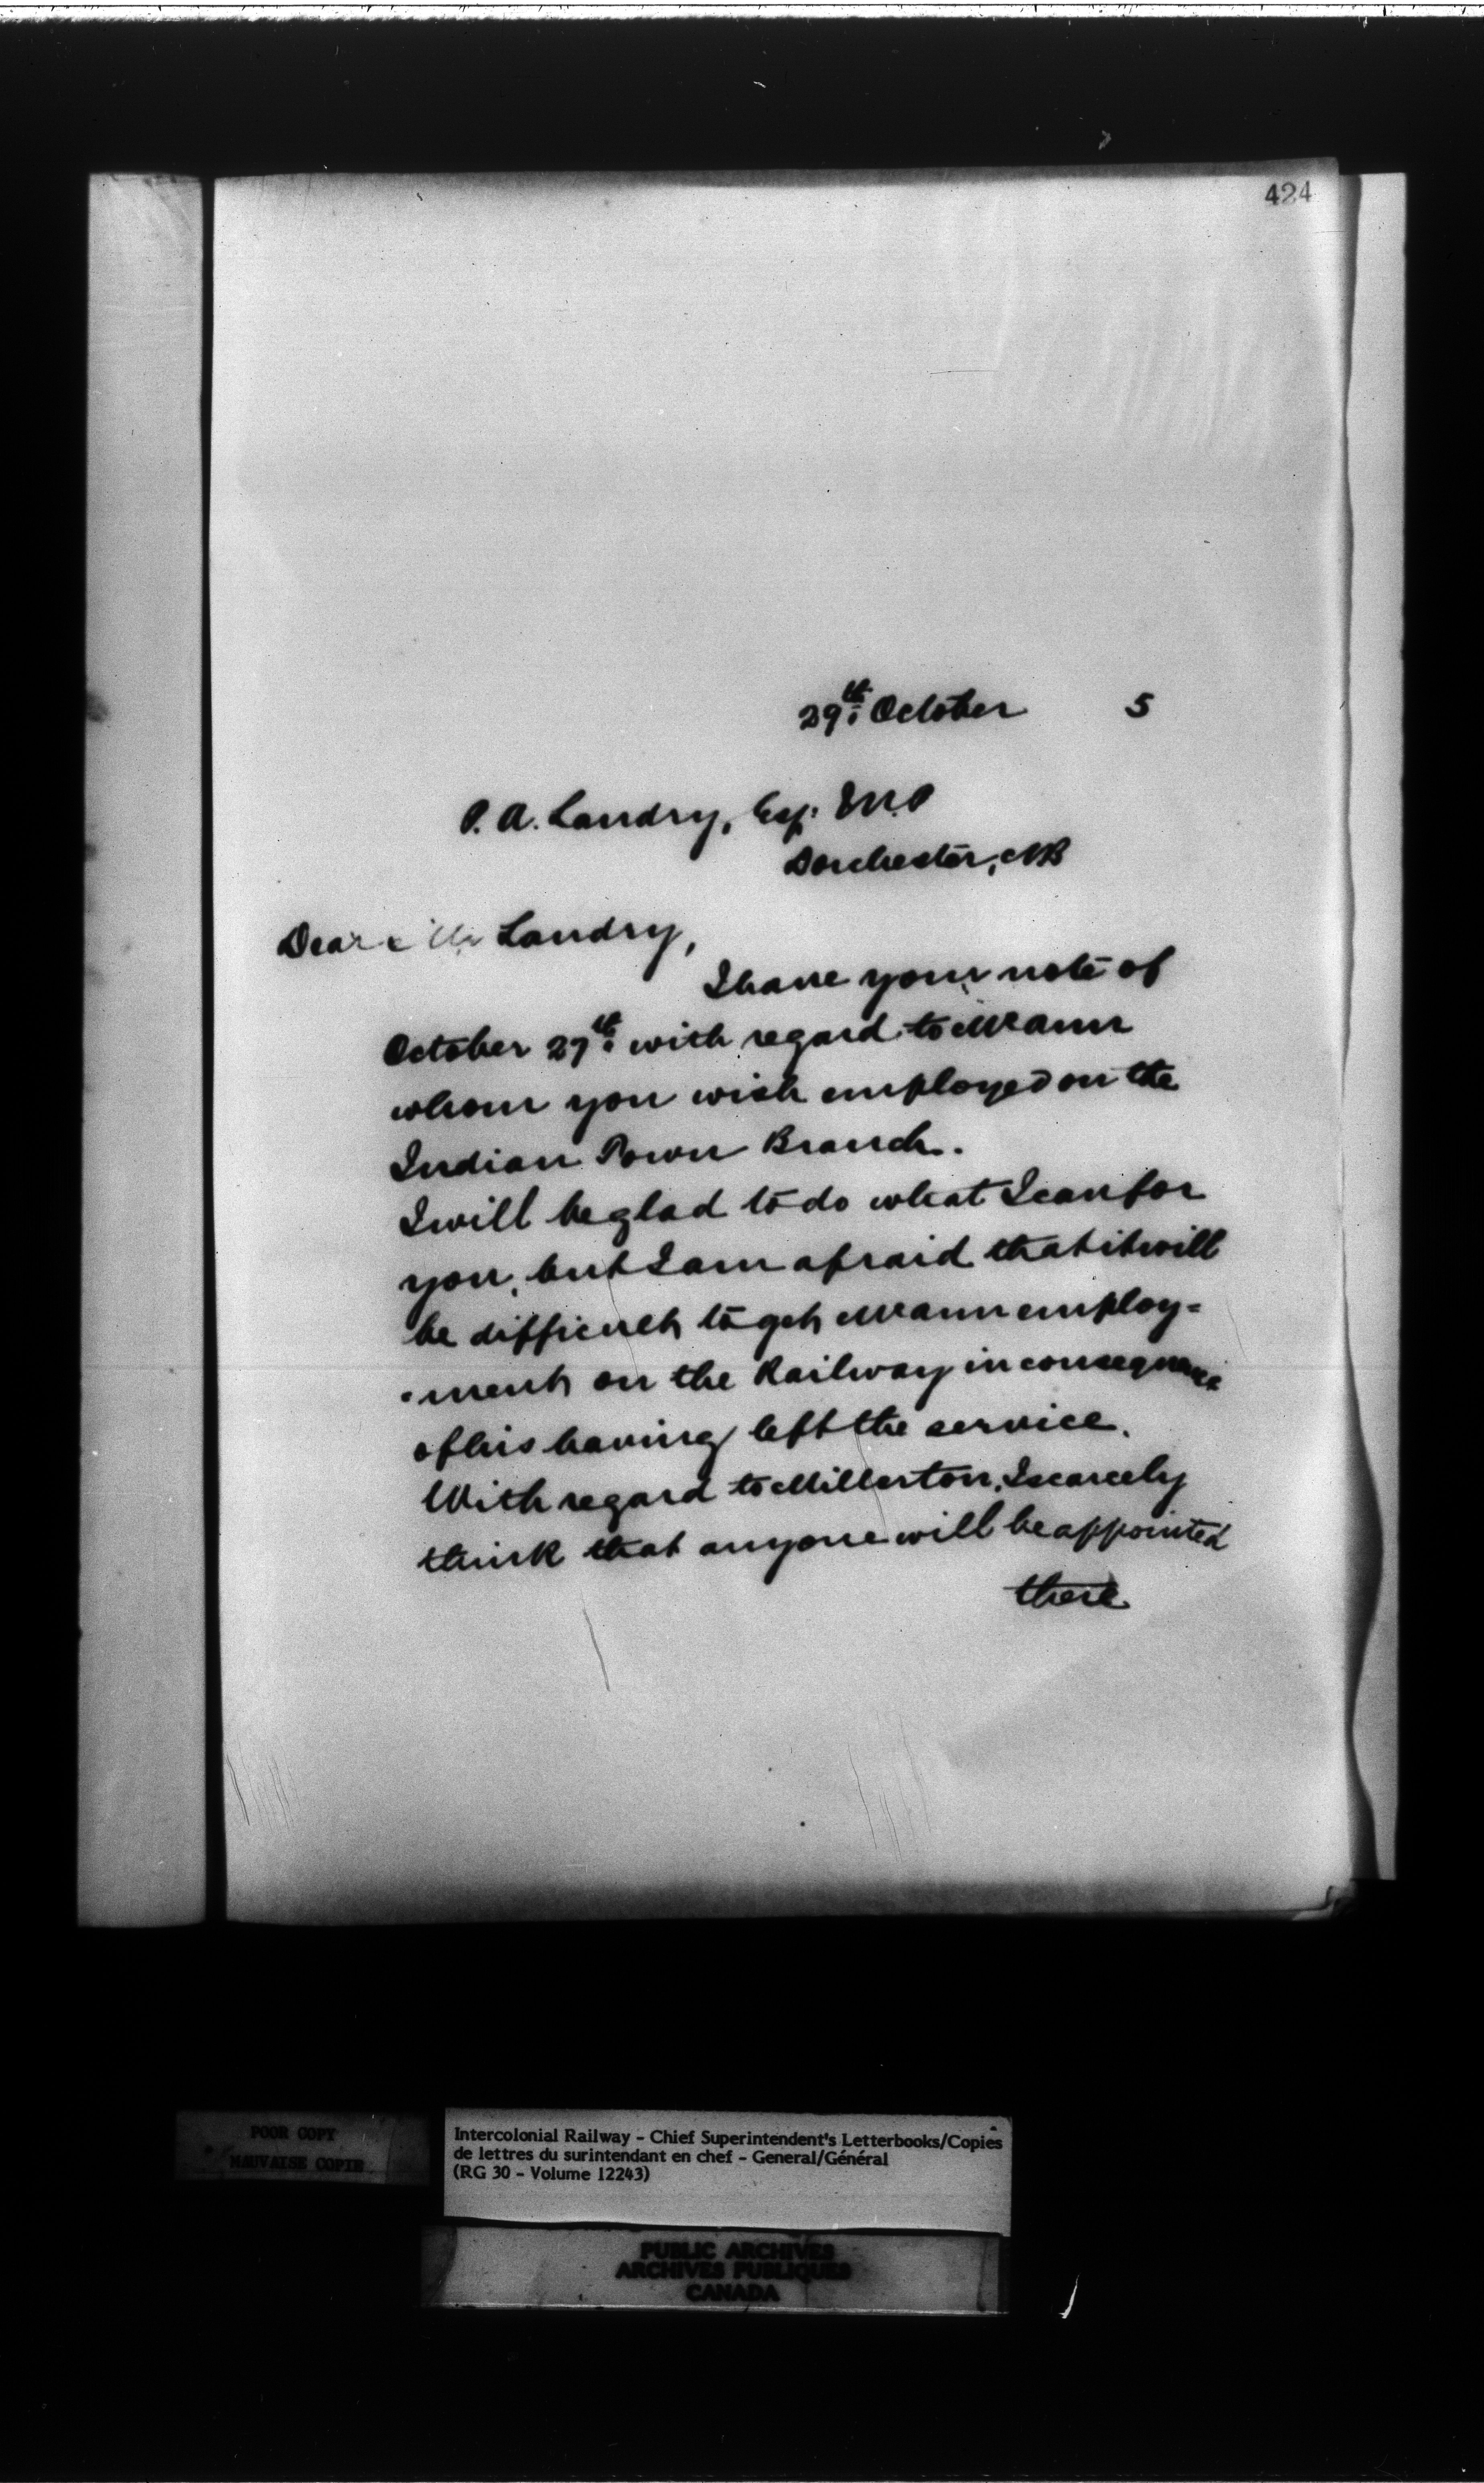 424
29th October 5
P. A. Landry, Esq. M.P
Dorchester, NB
Dear Mr Landry,
I have your note of
October 27th with regard to McCann
whom you wish employed on the
Indian Town Branch.
I will be glad to do what I can for
you, but I am afraid that it will
be difficult to get McCann employ=
-ment on the Railway in consequence
of his having left the service.
With regard to Millerton, I scarcely
think that anyone will be appointed
there
POOR COPY
MAUVAISE COPIE
Intercolonial Railway - Chief Superintendent's Letterbooks/Copies
de lettres du surintendant en chef - General/Général
(RG 30 - Volume 12243)
PUBLIC ARCHIVES
ARCHIVES PUBLIQUES
CANADA